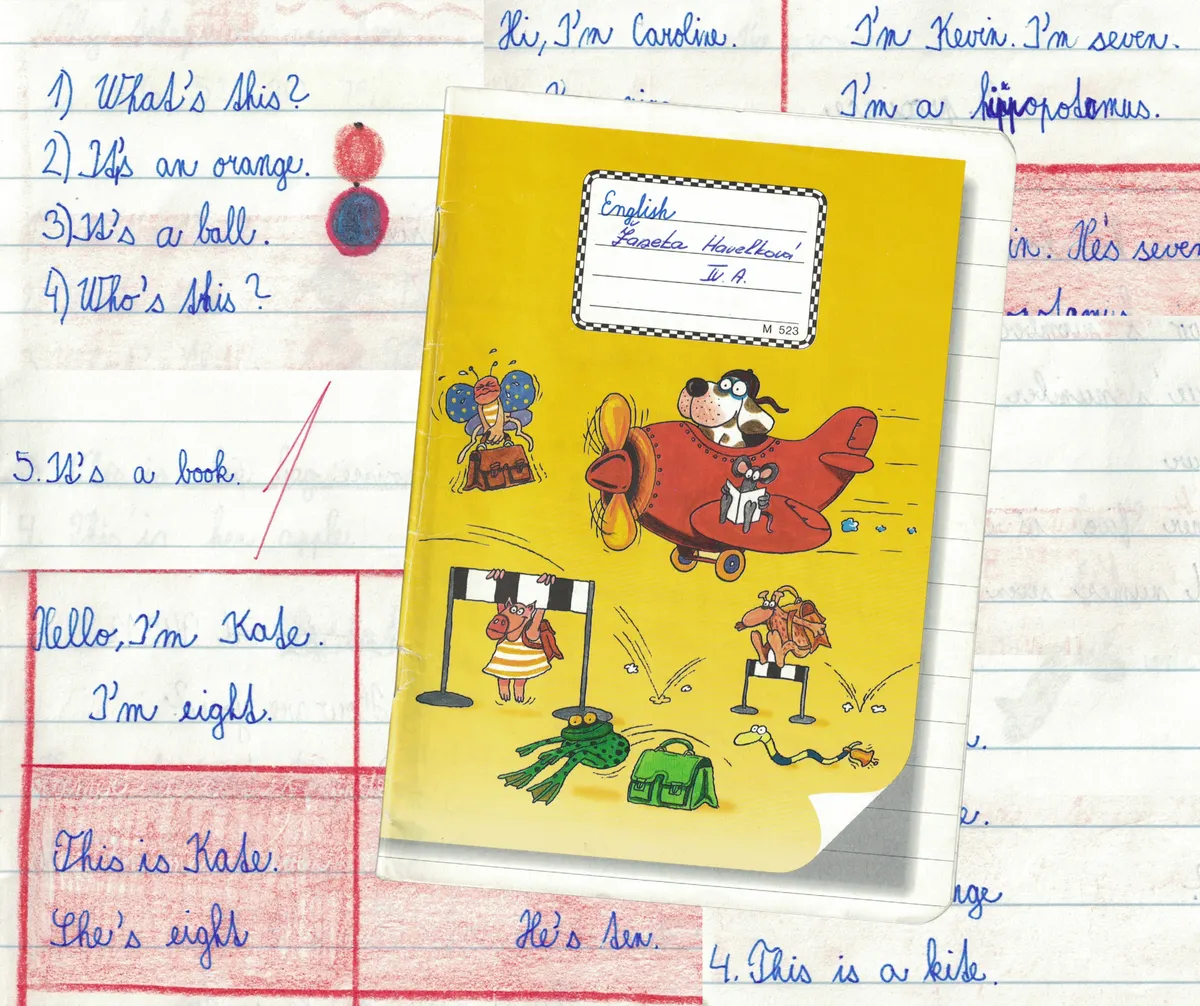 1) What's this?
2) It's an orange.
3) It's a ball.
4) Who's this?
5. It's a book.
Hello, I'm Kate.
I'm eight.
This is Kate.
She's eight
Hi, I'm Caroline.
I'm Kevin. I'm seven.
I'm a hippopotamus.
English
Žaneta Havelková
IV. A.
M 523
in. He's seven
He's ten.
nge
4. This is a kite.